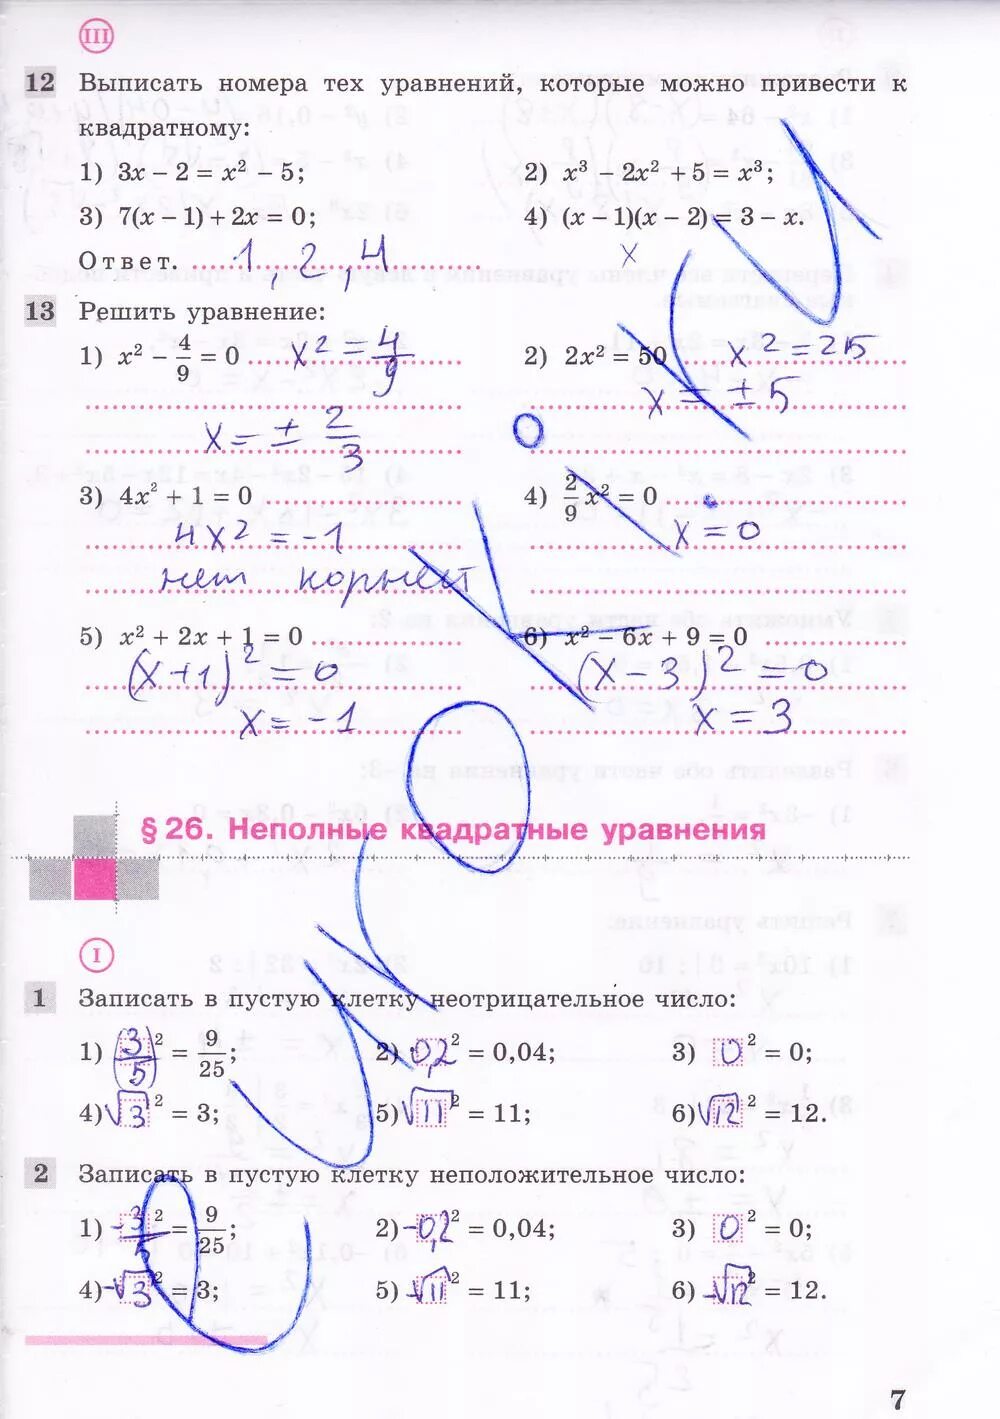 III
12 Выписать номера тех уравнений, которые можно привести к
квадратному:
1) 3x − 2 = x² − 5; 2) x³ − 2x² + 5 = x³;
3) 7(x − 1) + 2x = 0; 4) (x − 1)(x − 2) = 3 − x.
Ответ. 1, 2, 4 x
13 Решить уравнение:
1) x² − 4/9 = 0 x² = 4/9 2) 2x² = 50 x² = 25
x = ± 5
x = ± 2/3
3) 4x² + 1 = 0 4) 2/9 x² = 0
4x² = −1 x = 0
нет корней
5) x² + 2x + 1 = 0 6) x² − 6x + 9 = 0
(x+1)² = 0 (x − 3)² = 0
x = −1 x = 3
§ 26. Неполные квадратные уравнения
I
1 Записать в пустую клетку неотрицательное число:
1) (3/5)² = 9/25; 2) 0,2² = 0,04; 3) 0² = 0;
4) √3² = 3; 5) √11² = 11; 6) √12² = 12.
2 Записать в пустую клетку неположительное число:
1) −3/5² = 9/25; 2) −0,2² = 0,04; 3) 0² = 0;
4) −√3² = 3; 5) −√11² = 11; 6) −√12² = 12.
7